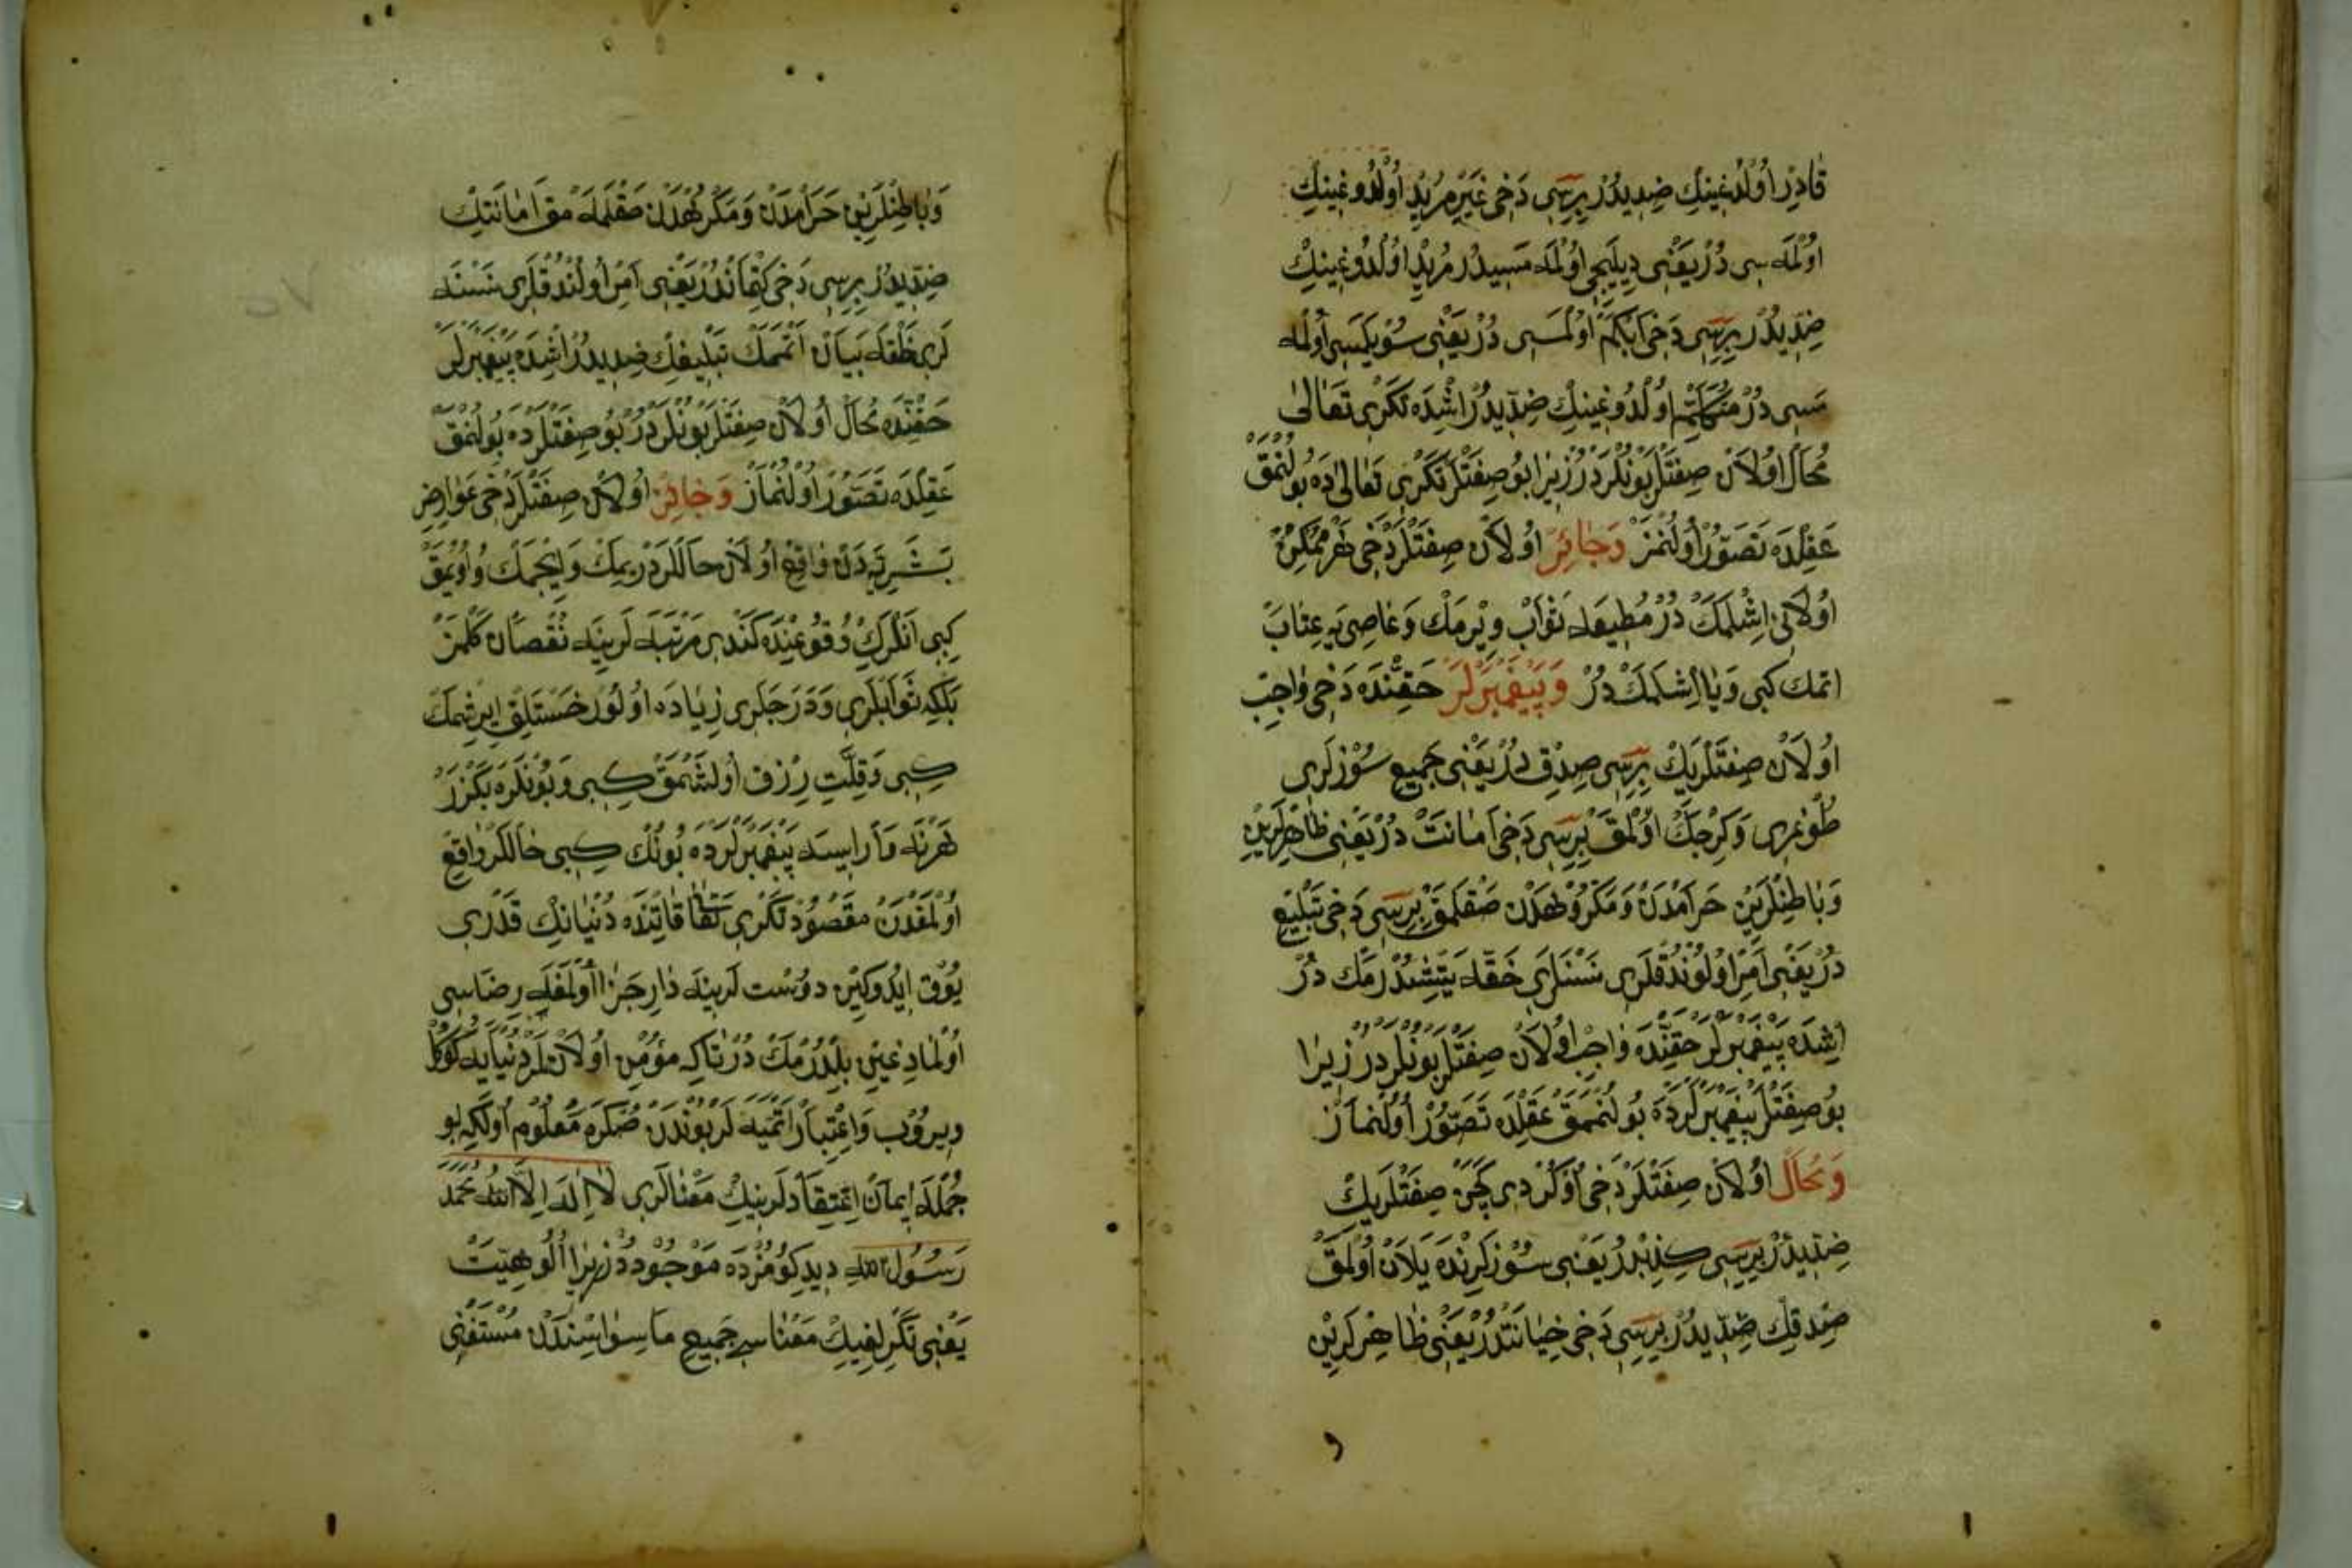 قَادِرْ اُولْدُغِينِكْ ضِدِّيدُرْ بِرِسِى دَخِى غَيْرِ مُرِيدْ اُولْدُوغِينِكْ
اُولْمَه سِى دُرْ يَعْنِى دِيلَيِجِى اُولْمَه مَسِيدُرْ مُرِيدْ اُولْدُوغِينِكْ
ضِدِّيدُرْ بِرِسِى دَخِى اَبْكَمْ اُولْمَسِى دُرْ يَعْنِى سُوْيلَيِجِى اُولْمَه
مَسِى دُرْ مُتَكَلِّمْ اُولْدُوغِينِكْ ضِدِّيدُرْ اِشْدَه تَكْرِى تَعَالٰى
مُحَالْ اُولَانْ صِفَتْلَرْ بُونْلَرْدُرْ زِيرَا بُو صِفَتْلَرْ تَكْرِى تَعَالٰى دَه بُولُنْمَقْ
عَقِلْدَه تَصَوُّرْ اُولُنْمَزْ وَجَائِزْ اُولَانْ صِفَتْلَرْ دَخِى هَرْ مُمْكِنْ
اُولَانِى اِشْلَمَكْ دُرْ مُطِيعَه ثَوَابْ وِيْرْمَكْ وَعَاصِى يَه عِتَابْ
اتمك كبى وَيَا اِشْلَمَكْ دُرْ وَپَيْغَمْبَرْلَرْ حَقِّنْدَه دَخِى وَاجِبْ
اُولَانْ صِفَتْلَرِيكْ بِرِسِى صِدْقْ دُرْ يَعْنِى جَمِيعْ سُوْزْلَرِى
طُوغْرِى وَكِرْجَكْ اُولْمَقْ بِرِسِى دَخِى اَمَانَتْ دُرْ يَعْنِى ظَاهِرْلَرِينْ
وَبَاطِنْلَرِينْ حَرَامْدَنْ وَمَكْرُوهْدَنْ صَقْلَمَقْ بِرِسِى دَخِى تَبْلِيغْ
دُرْ يَعْنِى اَمِرْ اُولُونْدُقْلَرِى نَسْنَلَرِى خَلْقَه يَتِشْدُرْمَكْ دُرْ
اِشْدَه پَيْغَمْبَرْلَرْ حَقِّنْدَه وَاجِبْ اُولَانْ صِفَتْلَرْ بُونْلَرْدُرْ زِيرَا
بُو صِفَتْلَرْ پَيْغَمْبَرْلَرْدَه بُولُنْمَمَقْ عَقِلْدَه تَصَوُّرْ اُولُنْمَازْ
وَمُحَالْ اُولَانْ صِفَتْلَرْ دَخِى اَوَّلْ دَى كَچَنْ صِفَتْلَرِيكْ
ضِدِّيدُرْ بِرِسِى كِذِبْدُرْ يَعْنِى سُوْزْلَرِنْدَه يَلَانْ اُولْمَقْ
صِدْقِكْ ضِدِّيدُرْ بِرِسِى دَخِى خِيَانَتْدُرْ يَعْنِى ظَاهِرْلَرِينْ
وَبَاطِنْلَرِينْ حَرَامْدَنْ وَمَكْرُوهْدَنْ صَقْلَمَه مَقْ اَمَانَتِكْ
ضِدِّيدُرْ بِرِسِى دَخِى كِتْمَانْدُرْ يَعْنِى اَمِرْ اُولُنْدُقْلَرِى نَسْنَه
لَرِى خَلْقَه بَيَانْ اَتْمَمَكْ تَبْلِيغِكْ ضِدِّيدُرْ اِشْدَه پَيْغَمْبَرْلَرْ
حَقِّنْدَه مُحَالْ اُولَانْ صِفَتْلَرْ بُونْلَرْدُرْ بُو صِفَتْلَرْ دَه بُولُنْمَقْ
عَقِلْدَه تَصَوُّرْ اُولُنْمَازْ وَجَائِزْ اُولَانْ صِفَتْلَرْ دَخِى عَوَارِضِ
بَشَرِيَّه دَنْ وَاقِعْ اُولَانْ حَالْلَرْدُرْ يِمَكْ وَاِيچْمَكْ وَاُويُمَقْ
كِبِى اَنْلَرِكْ وُقُوعِنْدَه كَنْدِى مَرْتَبَه لَرِينَه نُقْصَانْ كَلْمَزْ
بَلْكِه ثَوَابْلَرِى وَدَرَجَلَرِى زِيَادَه اُولُورْ خَسْتَلِقْ اِيرِشْمَكْ
كِبِى وَقِلَّتِ رِزْقْ اُولَشْمَقْ كِبِى وَبُونْلَرَه بَكْزَرْ
هَرْنَه وَارْايسَه پَيْغَمْبَرْلَرْدَه بُونُكْ كِبِى حَالْلَرْ وَاقِعْ
اُولْمَقْدَنْ مَقْصُودْ تَكْرِى تَعَالَى قَاتِنْدَه دُنْيَانِكْ قَدْرِى
يُوْقْ ايْدُوكِينْ دوُسْت لَرِينَه دَارِ جَزَا اُولْمَغَه رِضَاسِى
اُولْمَادِغِينْ بِلْدُرْمَكْ دُرْ تَاكِه مُؤْمِنْ اُولَانْلَرْ دُنْيَايَه كُوكُلْ
وِيرُوبْ وَاِعْتِبَارْ اَتْمَيَه لَرْ بُونْدَنْ صُكْرَه مَعْلُومْ اُولَكِه بُو
جُمْلَه اِيمَانْ اِعْتِقَادْلَرِينِكْ مَعْنَالَرِى لَا اِلَهَ اِلَّا اللّٰه مُحَمَّد
رَسُولُ اللّٰه دِيدِكُومُزْدَه مَوْجُودْدُرْ زِيرَا اُلُوهِيَّتْ
يَعْنِى تَكْرِلِغِيكْ مَعْنَاسِى جَمِيعِ مَاسِوَاسِنْدَنْ مُسْتَغْنِى